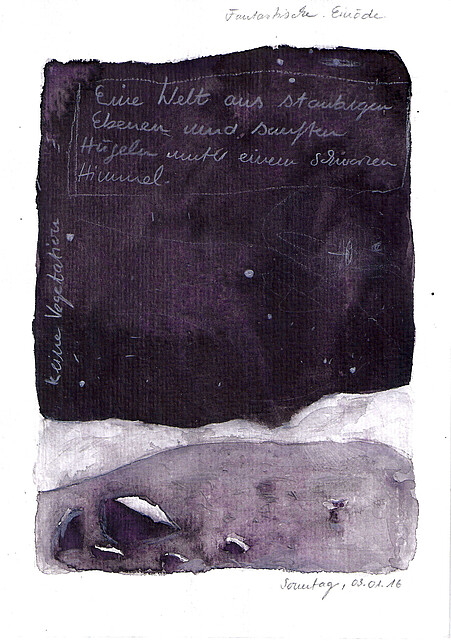 Fantastische Einöde
Eine Welt aus staubigen
Ebenen und sanften
Hügeln unter einem schwarzen
Himmel.
Keine Vegetation
Sonntag, 03.01.16